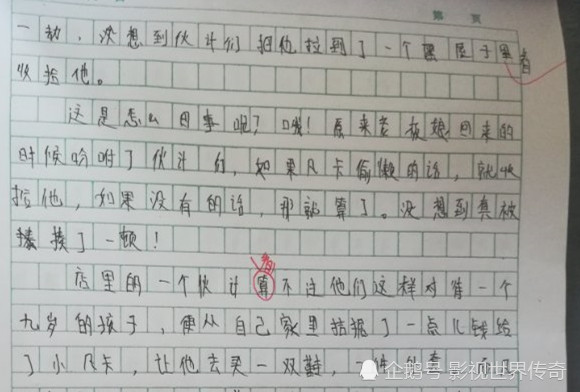 第 页
一动，没想到伙计们把他拉到了一个黑屋子里
收拾他。
这是怎么回事呢？哦！原来老板娘回来的
时候吩咐了伙计们，如果凡卡偷懒的话，就收
拾他，如果没有的话，那就算了。没想到真被
揍了一顿！
看
店里的一个伙计算不过他们这样对待一个
九岁的孩子，便从自己家里拮据了一点儿钱给
了小凡卡，让他去买一双鞋，一
企鹅号 影视世界传奇